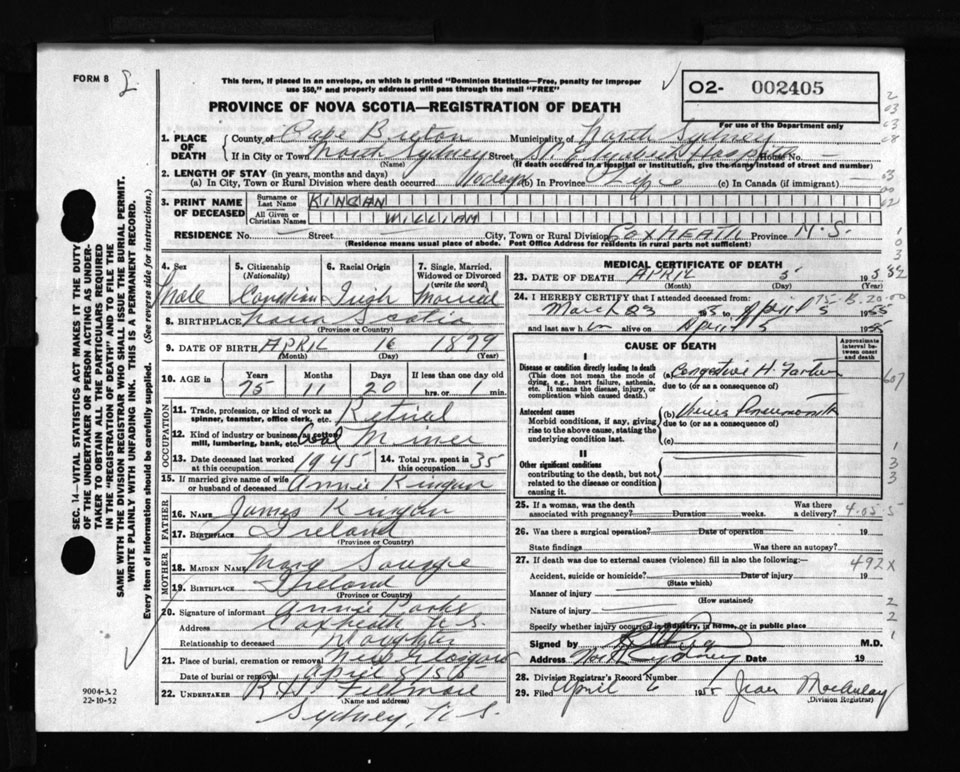 FORM 8
2
This form, if placed in an envelope, on which is printed "Dominion Statistics—Free, penalty for improper
use $50," and properly addressed will pass through the mail "FREE"
O2- 002405
For use of the Department only
PROVINCE OF NOVA SCOTIA—REGISTRATION OF DEATH
1. PLACE OF DEATH
County of Cape Breton Municipality of North Sydney
If in City or Town North Sydney Street St. Elizabeth Hospital House No. —
(Name) (If death occurred in a hospital or institution, give the name instead of street and number)
2. LENGTH OF STAY (in years, months and days)
(a) In City, Town or Rural Division where death occurred days (b) In Province Life (c) In Canada (if immigrant) —
3. PRINT NAME OF DECEASED
Surname or Last Name KINGAN
All Given or Christian Names WILLIAM
RESIDENCE No. Street City, Town or Rural Division COXHEATH Province N.S.
(Residence means usual place of abode. Post Office Address for residents in rural parts not sufficient)
4. Sex Male
5. Citizenship (Nationality) Canadian
6. Racial Origin Irish
7. Single, Married, Widowed or Divorced (write the word) Married
8. BIRTHPLACE Nova Scotia
(Province or Country)
9. DATE OF BIRTH APRIL 16 1879
(Month) (Day) (Year)
10. AGE in Years 75 Months 11 Days 20 If less than one day old hrs. or min.
OCCUPATION
11. Trade, profession, or kind of work as spinner, teamster, office clerk, etc. Retired
12. Kind of industry or business, as cotton mill, lumbering, bank, etc. Coal Miner
13. Date deceased last worked at this occupation 1945
14. Total yrs. spent in this occupation 35
15. If married give name of wife or husband of deceased Annie Kingan
FATHER
16. NAME James Kingan
17. BIRTHPLACE Ireland
(Province or Country)
MOTHER
18. MAIDEN NAME Mary
19. BIRTHPLACE Ireland
(Province or Country)
20. Signature of informant Annie
Address Coxheath N.S.
Relationship to deceased Daughter
21. Place of burial, cremation or removal New Glasgow
Date of burial or removal April 8/55
22. UNDERTAKER R.H. Fillmore
(Name and address)
Sydney, N.S.
MEDICAL CERTIFICATE OF DEATH
23. DATE OF DEATH APRIL 5 1955
(Month) (Day)
24. I HEREBY CERTIFY that I attended deceased from
March 23 55 to April 5 1955
and last saw him alive on April 5 1955
CAUSE OF DEATH
Approximate interval between onset and death
I
Disease or condition directly leading to death
(This does not mean the mode of dying, e.g., heart failure, asthenia, etc. It means the disease, injury, or complication which caused death.)
(a) Congestive H. Failure
due to (or as a consequence of)
Antecedent causes
Morbid conditions, if any, giving rise to the above cause, stating the underlying condition last.
(b) Virus Pneumonitis
due to (or as a consequence of)
(c)
II
Other significant conditions
contributing to the death, but not related to the disease or condition causing it.
25. If a woman, was the death associated with pregnancy? Duration weeks. Was there a delivery?
26. Was there a surgical operation? Date of operation 19
State findings Was there an autopsy?
27. If death was due to external causes (violence) fill in also the following:—
492X
Accident, suicide or homicide? Date of injury 19
(State which)
Manner of injury
(How sustained)
Nature of injury
Specify whether injury occurred in industry, in home, or in public place
Signed by M.D.
Address North Sydney Date 19
28. Division Registrar's Record Number
29. Filed April 6 1955 Jean MacAulay
(Division Registrar)
SEC. 14—VITAL STATISTICS ACT MAKES IT THE DUTY
OF THE UNDERTAKER OR PERSON ACTING AS UNDER-
TAKER TO OBTAIN ALL THE PARTICULARS REQUIRED
IN THE "REGISTRATION OF DEATH" AND TO FILE THE
SAME WITH THE DIVISION REGISTRAR WHO SHALL ISSUE THE BURIAL PERMIT.
WRITE PLAINLY WITH UNFADING INK. THIS IS A PERMANENT RECORD.
Every item of information should be carefully supplied. (See reverse side for instructions.)
9004-3.2
22-10-52